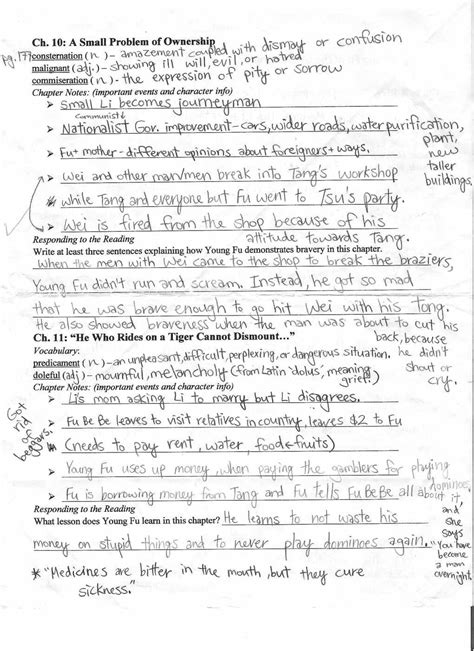 Ch. 10: A Small Problem of Ownership
pg. 171 consternation (n) - amazement coupled with dismay or confusion
malignant (adj.) - showing ill will, evil, or hatred
commiseration (n) - the expression of pity or sorrow
Chapter Notes: (important events and character info)
➢ Small Li becomes journeyman
Communist
➢ Nationalist Gov. improvement - cars, wider roads, water purification, plant, new taller buildings,
➢ Fu + mother - different opinions about foreigners + ways.
➢ Wei and other man/men break into Tang's workshop
* while Tang and everyone but Fu went to Tsu's party.
➢ Wei is fired from the shop because of his attitude towards Tang.
Responding to the Reading
Write at least three sentences explaining how Young Fu demonstrates bravery in this chapter.
When the men with Wei came to the shop to break the braziers,
Young Fu didn't run and scream. Instead, he got so mad
that he was brave enough to go hit Wei with his Tong.
He also showed braveness when the man was about to cut his back, because he didn't shout or cry.
Ch. 11: "He Who Rides on a Tiger Cannot Dismount…"
Vocabulary:
predicament (n) - an unpleasant, difficult, perplexing, or dangerous situation.
doleful (adj) - mournful, melancholy (from Latin 'dolus', meaning grief)
Chapter Notes: (important events and character info)
Got rid on beggars.
➢ Li's mom asking Li to marry but Li disagrees.
➢ Fu Be Be leaves to visit relatives in country, leaves $2 to Fu
* (needs to pay rent, water, food + fruits)
➢ Young Fu uses up money, when paying the gamblers for playing dominoes,
➢ Fu is borrowing money from Tang and Fu tells Fu Be Be all about it, and she says "You have become a man overnight."
Responding to the Reading
What lesson does Young Fu learn in this chapter? He learns to not waste his
money on stupid things and to never play dominoes again.
* "Medicines are bitter in the mouth, but they cure
sickness."